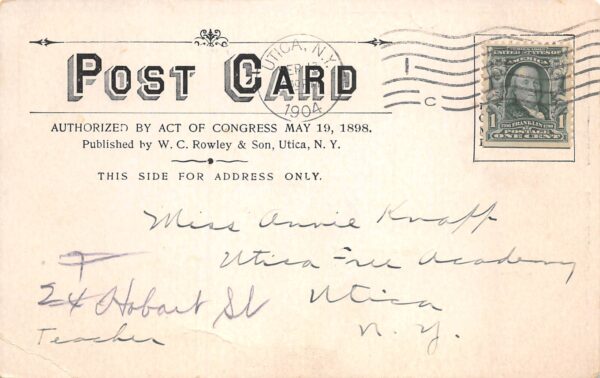 POST CARD
UTICA, N.Y.
1904
C
AUTHORIZED BY ACT OF CONGRESS MAY 19, 1898.
Published by W. C. Rowley & Son, Utica, N. Y.
THIS SIDE FOR ADDRESS ONLY.
UNITED STATES OF AMERICA
FRANKLIN
1 POSTAGE 1
ONE CENT
Miss Annie Knapp
Utica Free Academy
Utica
N. Y.
24 Hobart St
Teacher